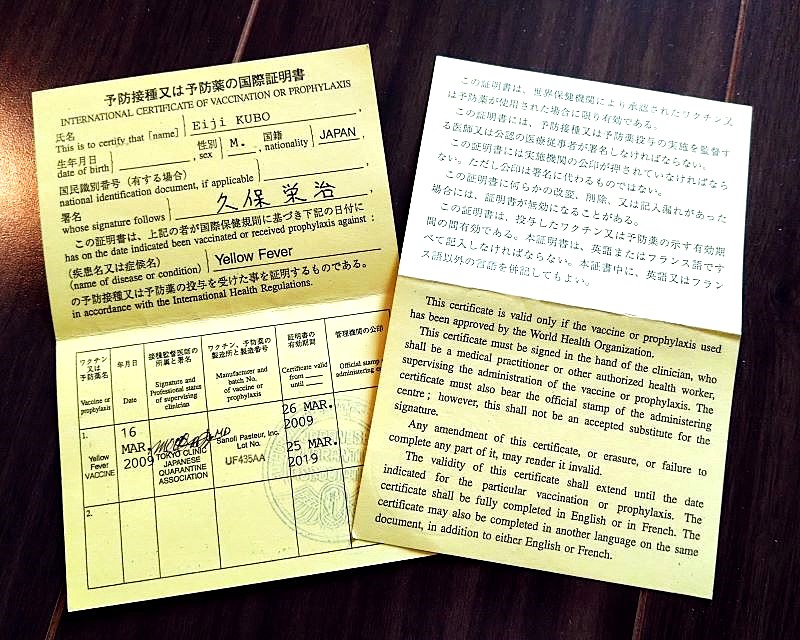 予防接種又は予防薬の国際証明書
INTERNATIONAL CERTIFICATE OF VACCINATION OR PROPHYLAXIS
氏名
This is to certify that [name] Eiji KUBO ,
生年月日 性別 国籍
date of birth , sex M. , nationality JAPAN ,
国民識別番号 (有する場合)
national identification document, if applicable ,
署名
whose signature follows 久保栄治
この証明書は、上記の者が国際保健規則に基づき下記の日付に
has on the date indicated been vaccinated or received prophylaxis against :
(疾患名又は症候名)
(name of disease or condition) Yellow Fever
の予防接種又は予防薬の投与を受けた事を証明するものである。
in accordance with the International Health Regulations.
ワクチン
又は
予防薬名
Vaccine or
prophylaxis
年月日
Date
接種監督医師の
所属と署名
Signature and
Professional status
of supervising
clinician
ワクチン、予防薬の
製造所と製造番号
Manufacturer and
batch No.
of vaccine or
prophylaxis
証明書の
有効期間
Certificate valid
from
until
管理機関の公印
Official stamp
administering
1.
Yellow
Fever
VACCINE
16
MAR.
2009
MD
TOKYO CLINIC
JAPANESE
QUARANTINE
ASSOCIATION
Sanofi Pasteur, Inc.
Lot No.
UF435AA
26 MAR.
2009
25 MAR.
2019
2.
この証明書は、世界保健機関により承認されたワクチン又
は予防薬が使用された場合に限り有効である。
この証明書には、予防接種又は予防薬投与の実施を監督す
る医師又は公認の医療従事者が署名しなければならない。
この証明書には実施機関の公印が押されていなければなら
ない。ただし公印は署名に代わるものではない。
この証明書に何らかの改変、削除、又は記入漏れがあった
場合には、証明書が無効になることがある。
この証明書は、投与したワクチン又は予防薬の示す有効期
間の間有効である。本証明書は、英語またはフランス語です
べて記入しなければならない。本証書中に、英語又はフラン
ス語以外の言語を併記してもよい。
This certificate is valid only if the vaccine or prophylaxis used
has been approved by the World Health Organization.
This certificate must be signed in the hand of the clinician, who
shall be a medical practitioner or other authorized health worker,
supervising the administration of the vaccine or prophylaxis. The
certificate must also bear the official stamp of the administering
centre ; however, this shall not be an accepted substitute for the
signature.
Any amendment of this certificate, or erasure, or failure to
complete any part of it, may render it invalid.
The validity of this certificate shall extend until the date
indicated for the particular vaccination or prophylaxis. The
certificate shall be fully completed in English or in French. The
certificate may also be completed in another language on the same
document, in addition to either English or French.